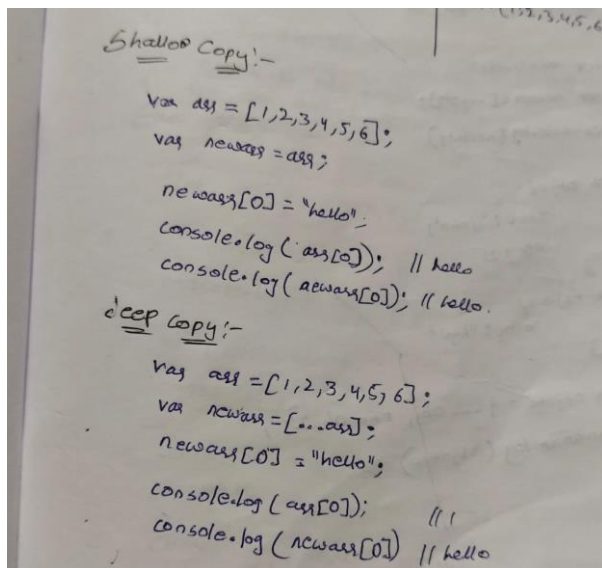 (1,2,3,4,5,6
Shallow Copy:-
var arr = [1,2,3,4,5,6];
var newarr = arr;
newarr[0] = "hello";
console.log( arr[0]); // hello
console.log( newarr[0]); // hello.
deep copy:-
var arr = [1,2,3,4,5,6];
var newarr = [...arr];
newarr[0] = "hello";
console.log( arr[0]); // 1
console.log( newarr[0]) // hello